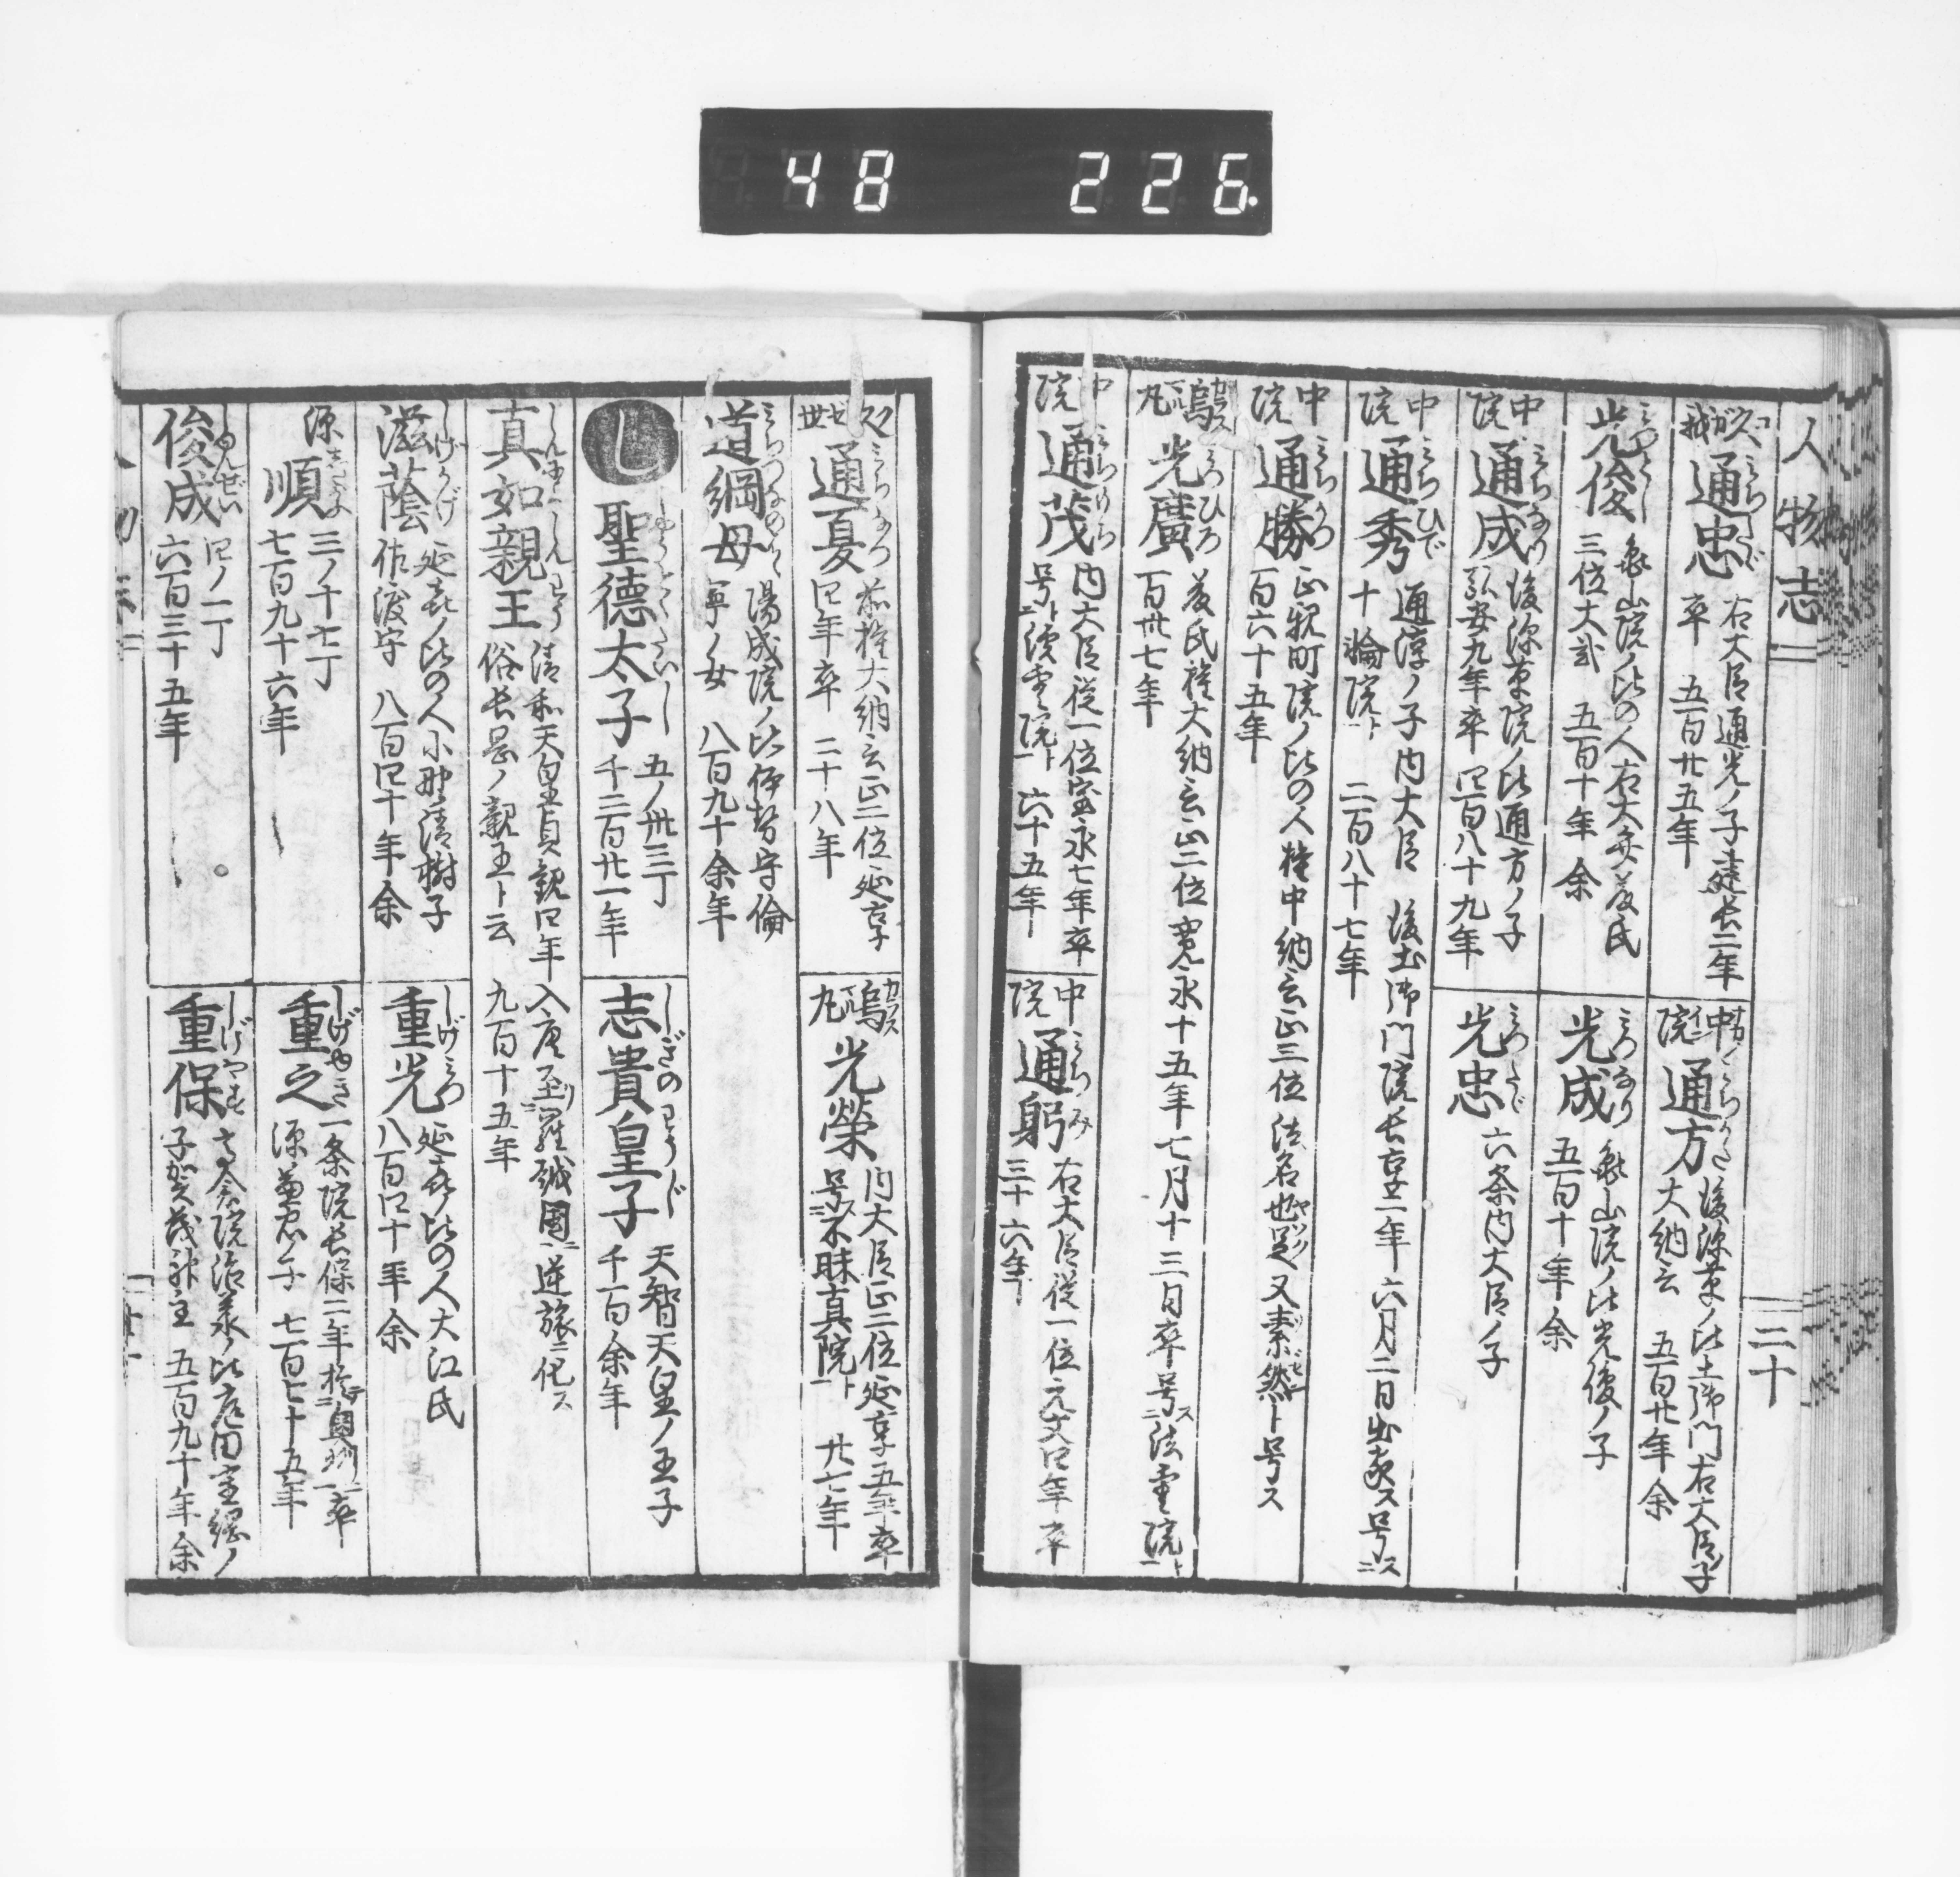 48 226
人物志 二十
久我 通忠 右大臣通光ノ子建長二年
卒 五百廿五年
中院 通方 後深草ノ比土御門右大臣子
大納言 五百廿年余
光俊 亀山院ノ比の人右大弁藤氏
三位大弐 五百十年余
光成 亀山院ノ比光俊ノ子
五百十年余
中院 通成 後深草院ノ比通方ノ子
弘安九年卒 四百八十九年
光忠 六条内大臣ノ子
中院 通秀 通淳ノ子内大臣 後土御門院長享二年六月二日出家ス号ス
十輪院ト 二百八十七年
中院 通勝 正親町院ノ比の人権中納言正三位法名也足又素然ト号ス
百六十五年
烏丸 光廣 藤氏権大納言正二位寛永十五年七月十三日卒号ス法雲院ト
百卅七年
中院 通茂 内大臣従一位宝永七年卒
号ト渓雲院ト 六十五年
中院 通躬 右大臣従一位元文四年卒
三十六年
久世 通夏 前権大納言正二位延享
四年卒 二十八年
烏丸 光榮 内大臣正二位延享五年卒
号ス不昧真院ト 廿七年
道綱母 陽成院ノ比伊勢守倫
寧ノ女 八百九十余年
し 聖德太子 五ノ卅三丁
千二百廿一年
志貴皇子 天智天皇ノ王子
千百余年
真如親王 清和天皇貞観四年入唐至リ羅越国ニ逆旅ニ化ス
俗長岳ノ親王ト云 九百十五年
滋蔭 延喜ノ比の人小野清樹子
佐渡守 八百四十年余
重光 延喜ノ比の人大江氏
八百四十年余
源 順 三ノ十七丁
七百九十六年
重之 一条院長保二年於奥州卒
源兼忠ノ子 七百七十五年
俊成 四ノ一丁
六百三十五年
重保 高倉院治承ノ比 
子賀茂神主 五百九十年余